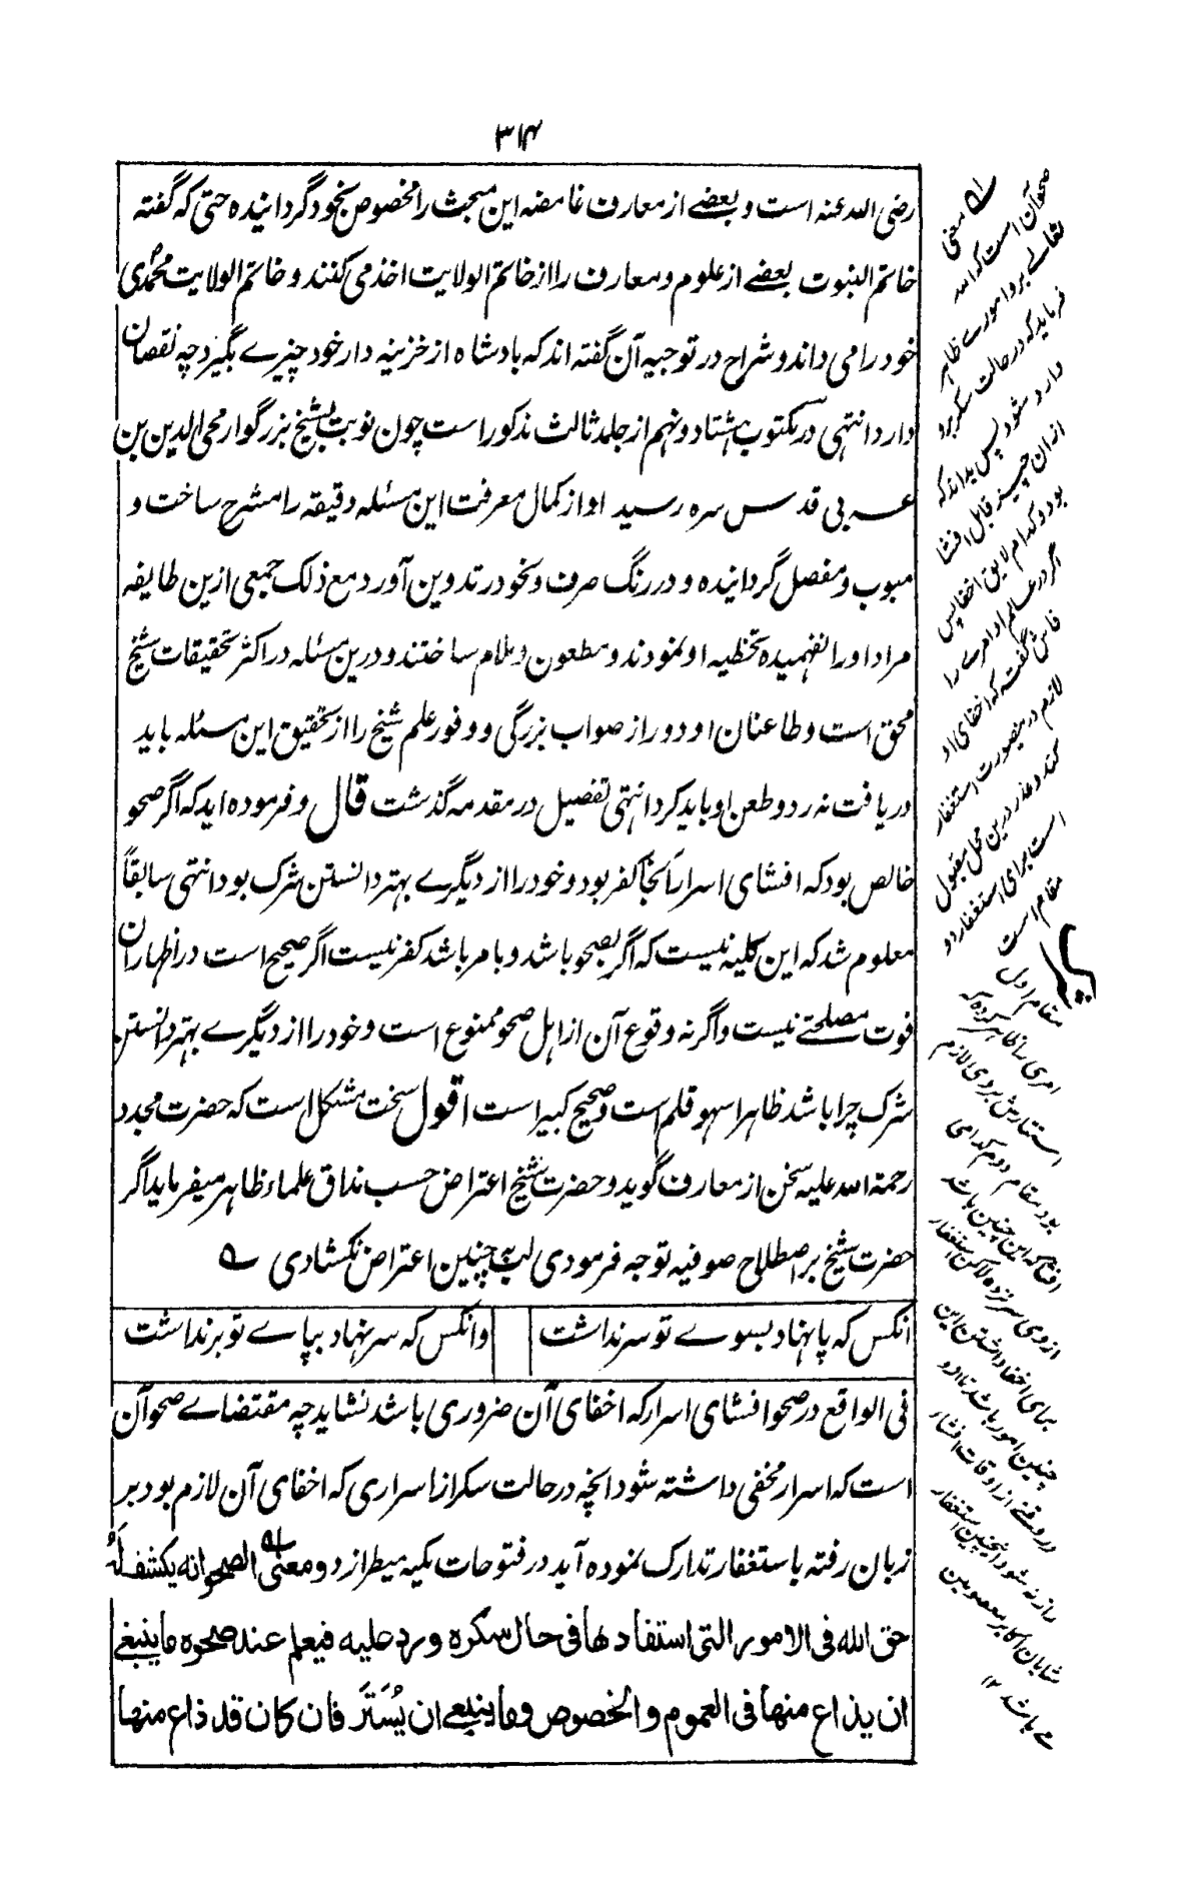 ۳۱۴
رضی الله عنه است و بعضے از معارف غامضه این مبحث را مخصوص بخود گردانیده حتی که گفته
خاتم النبوت بعضے از علوم و معارف را از خاتم الولایت اخذ می کنند و خاتم الولایت محمدی
خود را می داند و شراح در توجیه آن گفته اند که بادشاه از خزینه دار خود چیزے بگیرد چه نقصان
دارد انتهی در مکتوب هشتاد و نهم از جلد ثالث مذکور است چون نوبت بشیخ بزرگوار محی الدین بن
عربی قدس سره رسید او از کمال معرفت این مسئله دقیقه را مشرح ساخت و
مبوب و مفصل گردانیده و در رنگ صرف و نحو در تدوین آورد مع ذلک جمعی ازین طایفه
مراد او را نفهمیده تخطیه او نمودند و مطعون و ملام ساختند و درین مسئله در اکثر تحقیقات شیخ
محق است و طاعنان او دور از صواب بزرگی و وفور علم شیخ را از تحقیق این مسئله باید
دریافت نه رد و طعن او باید کرد انتهی تفصیل در مقدمه گذشت قال و فرموده اید که اگر صحو
خالص بود که افشای اسرار آنجا کفر بود و خود را از دیگرے بهتر دانستن شرک بود انتهی سابقاً
معلوم شد که این کلیه نیست که اگر بصحو باشد و با مر باشد کفر نیست اگر صحیح است در اظهار آن
فوت مصلحتے نیست و اگر نه وقوع آن از اهل صحو ممنوع است و خود را از دیگرے بهتر دانستن
شرک چرا باشد ظاهرا سهو قلم است و صحیح کبیر است اقول سخت مشکل است که حضرت مجدد
رحمة الله علیه سخن از معارف گوید و حضرت شیخ اعتراض حسب مذاق علماء ظاهر میفرماید اگر
حضرت شیخ بر اصطلاح صوفیه توجه فرمودی لب بچنین اعتراض نکشادی
آنکس که پا نهاد بسوے تو سر نداشت وانکس که سر نهاد بپاے تو بر نداشت
فی الواقع در صحو افشای اسرار که اخفای آن ضروری باشد نشاید چه مقتضاے صحو آن
است که اسرار مخفی داشته شود انچه در حالت سکر از اسراری که اخفای آن لازم بود بر
زبان رفته باستغفار تدارک نموده آید در فتوحات مکیه میطرازد و معنی الصحو انه یکشف لَهُ
حق الله فی الامور التی استفادها فی حال سکره ویرد علیه فیعلم عند صحوه ما ینبغے
ان یذاع منها فی العموم والخصوص وما ینبغے ان یُسْتَرَ فان کان قد ذاع منها
معنی
صحو آن است که الله
تعالے بر وا مورے ظاهر
فرماید که در حالت سکر برو
وارد شود پس بداند که
ازان چیز قابل افشا
بود و کدام لایق اخفا پس
اگر در عالم او امرے را
فاش گفته که اخفای او
لازم در ینصورت استغفار
کند و عذر درین محل مقبول
است برای استغفار دو
مقام است
مقام اول
امری را ظاهر کرده که
استتارش بروی لازم
بود مقام دوم
برای اخفا داشتن این
چنین امور باشد تا ازو
در وقتے از اوقات افشاء
راز نه شود و اینچنین استغفار
شایان اکابر معصومین
مے باشد ۱۲